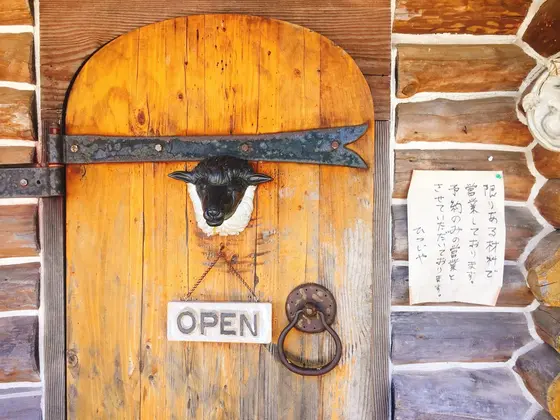 OPEN
限りある材料で
営業しております。
予約のみの営業と
させていただいております。
ひつじや